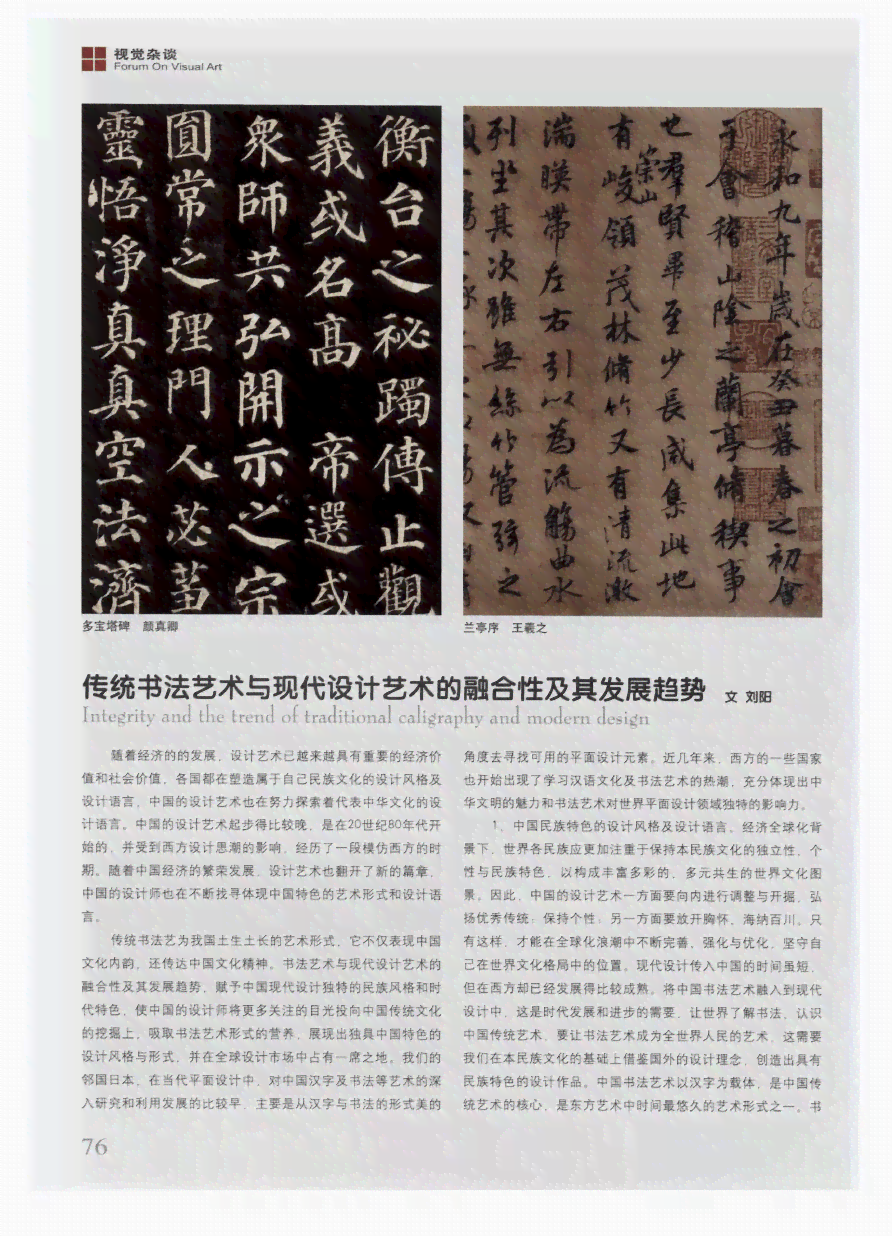 视觉杂谈
Forum On Visual Art
衡台之秘躅傳止觀
義或名高 帝選或
衆師共弘開示之宗
圓常之理門人苾蒭
靈悟淨真真空法濟
永和九年歲在癸丑暮春之初會
于會稽山陰之蘭亭脩稧事
也羣賢畢至少長咸集此地
有崇山峻領茂林脩竹又有清流激
湍暎帶左右引以為流觴曲水
列坐其次雖無絲竹管弦之
多宝塔碑 颜真卿
兰亭序 王羲之
传统书法艺术与现代设计艺术的融合性及其发展趋势 文 刘阳
Integrity and the trend of traditional caligraphy and modern design
随着经济的的发展，设计艺术已越来越具有重要的经济价
值和社会价值，各国都在塑造属于自己民族文化的设计风格及
设计语言，中国的设计艺术也在努力探索着代表中华文化的设
计语言。中国的设计艺术起步得比较晚，是在20世纪80年代开
始的，并受到西方设计思潮的影响，经历了一段模仿西方的时
期。随着中国经济的繁荣发展，设计艺术也翻开了新的篇章，
中国的设计师也在不断找寻体现中国特色的艺术形式和设计语
言。
传统书法艺为我国土生土长的艺术形式，它不仅表现中国
文化内韵，还传达中国文化精神。书法艺术与现代设计艺术的
融合性及其发展趋势，赋予中国现代设计独特的民族风格和时
代特色，使中国的设计师将更多关注的目光投向中国传统文化
的挖掘上，吸取书法艺术形式的营养，展现出独具中国特色的
设计风格与形式，并在全球设计市场中占有一席之地。我们的
邻国日本，在当代平面设计中，对中国汉字及书法等艺术的深
入研究和利用发展的比较早，主要是从汉字与书法的形式美的
角度去寻找可用的平面设计元素。近几年来，西方的一些国家
也开始出现了学习汉语文化及书法艺术的热潮，充分体现出中
华文明的魅力和书法艺术对世界平面设计领域独特的影响力。
1、中国民族特色的设计风格及设计语言。经济全球化背
景下，世界各民族应更加注重于保持本民族文化的独立性、个
性与民族特色，以构成丰富多彩的、多元共生的世界文化图
景。因此，中国的设计艺术一方面要向内进行调整与开掘，弘
扬优秀传统；保持个性；另一方面要放开胸怀，海纳百川。只
有这样，才能在全球化浪潮中不断完善，强化与优化，坚守自
己在世界文化格局中的位置。现代设计传入中国的时间虽短，
但在西方却已经发展得比较成熟。将中国书法艺术融入到现代
设计中，这是时代发展和进步的需要，让世界了解书法，认识
中国传统艺术，要让书法艺术成为全世界人民的艺术，这需要
我们在本民族文化的基础上借鉴国外的设计理念，创造出具有
民族特色的设计作品。中国书法艺术以汉字为载体，是中国传
统艺术的核心，是东方艺术中时间最悠久的艺术形式之一。书
76